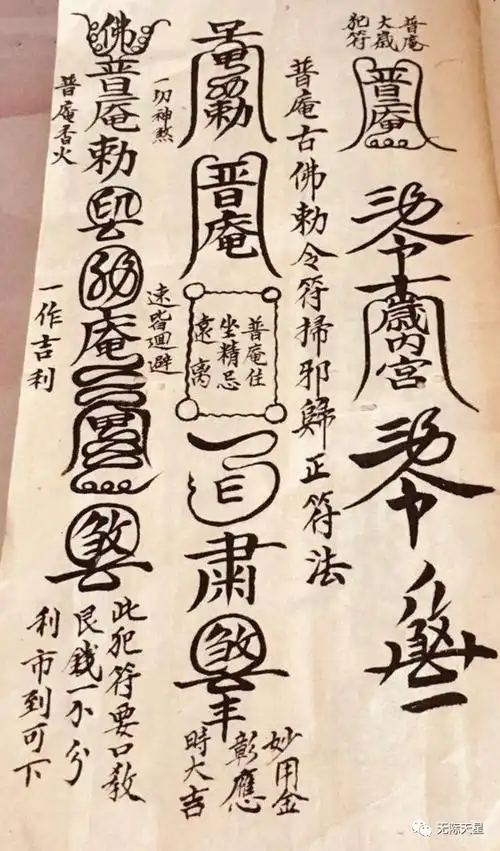 普庵
大歲
犯符
普庵
令
歲內宮
令
普庵古佛勅令符掃邪歸正符法
勅
普庵
普庵住
坐精忌
遠離
肅
煞
妙用金
彰應
時大吉
一切神煞
速皆迴避
佛
普庵勅
庵
煞
此犯符要口教
艮錢一分
利市到可下
普庵香火
一作吉利
无际天星